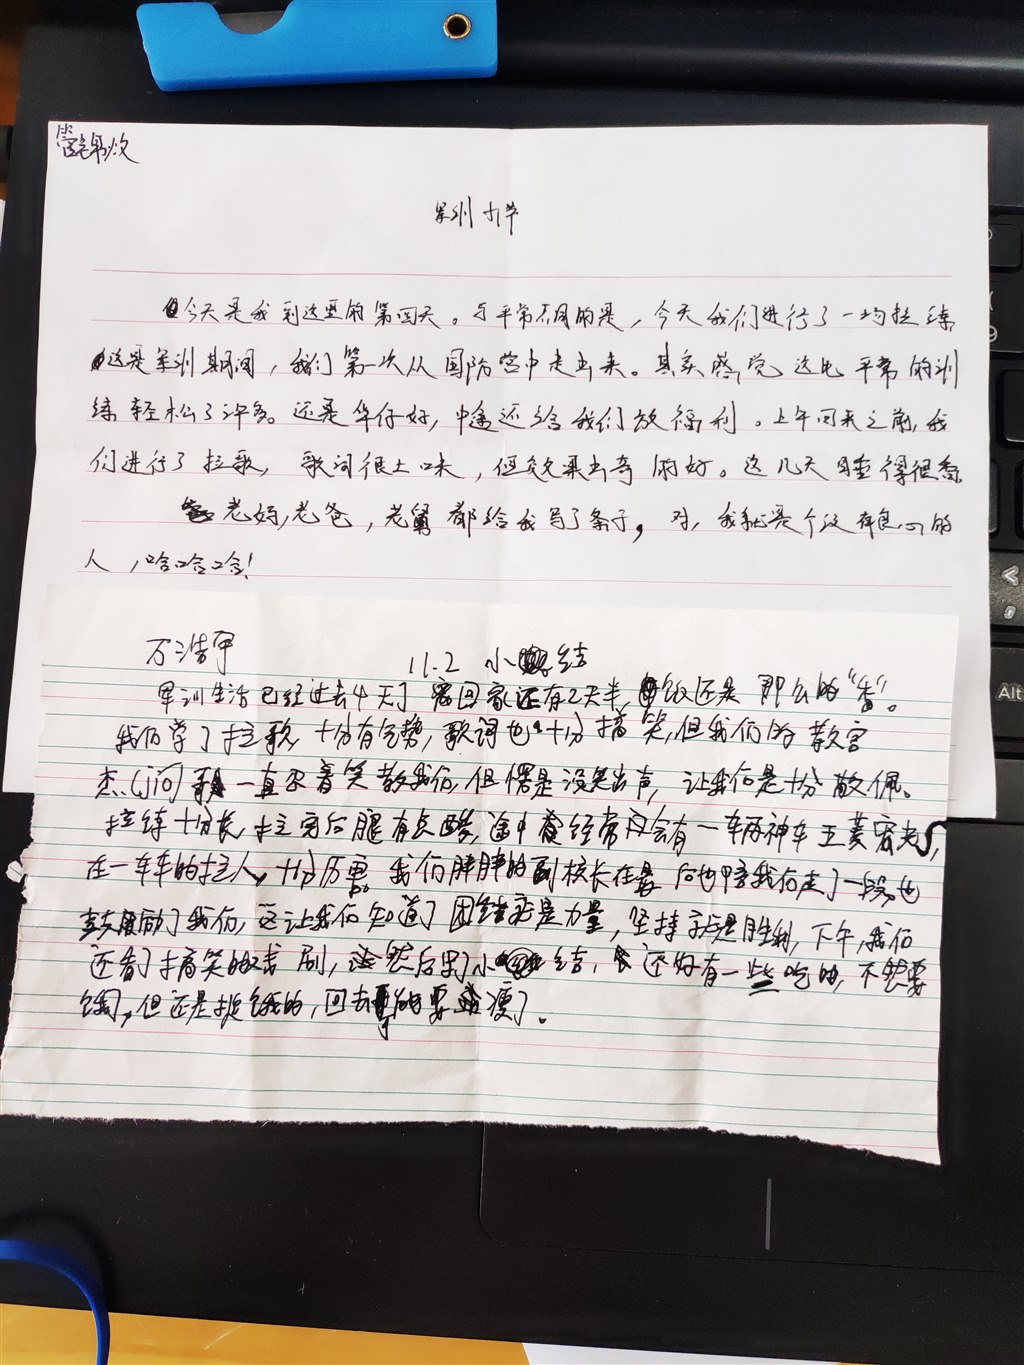 军训
今天是我到这里的第四天。与平常不同的是，今天我们进行了一场拉练
这是军训期间，我们第一次从国防宫中走出来。其实感觉这比平常的训
练轻松了许多。还是华仔好，中途还给我们放福利。上午回来之前，我
们进行了拉歌，歌词很土味，但效果出奇的好。这几天睡得很香
老妈，老爸，老舅都给我写了条子，对，我就是个没有良心的
人，哈哈哈！
万浩宇
11.2 小结
军训生活已经过去4天了离回家还有2天半，饭还是那么的“香”。
我们学了拉歌，十分有气势，歌词也十分搞笑，但我们的教官
杰(jió)一直忍着笑教我们，但愣是没笑出声，让我们是十分敬佩。
拉练十分长，拉完后腿有点酸，途中经常会有一辆神车五菱宏光，
在一车车的拉人，十分厉害。我们胖胖的副校长在最后也陪我们走了一段，也
鼓励了我们，这让我们知道了团结就是力量，坚持就是胜利，下午，我们
还看了搞笑的喜剧，然后写了小结，还好有一些吃的，不然要
饿，但还是挺饿的，回去的要瘦了。